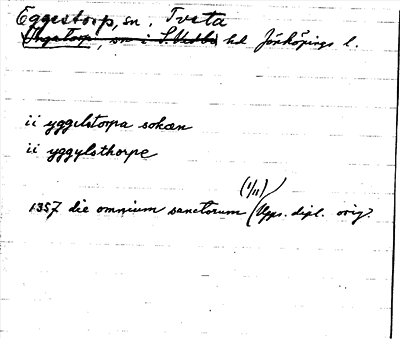 Eggestorp, sn. Tveta
Ynge Torp, sn i S. Vedbo hd Jönköpings l.
ii yggelstorpa sokæn
ii yggylsthorpe
(1/11)
1357 die omnium sanctorum (Upps. dipl. orig.